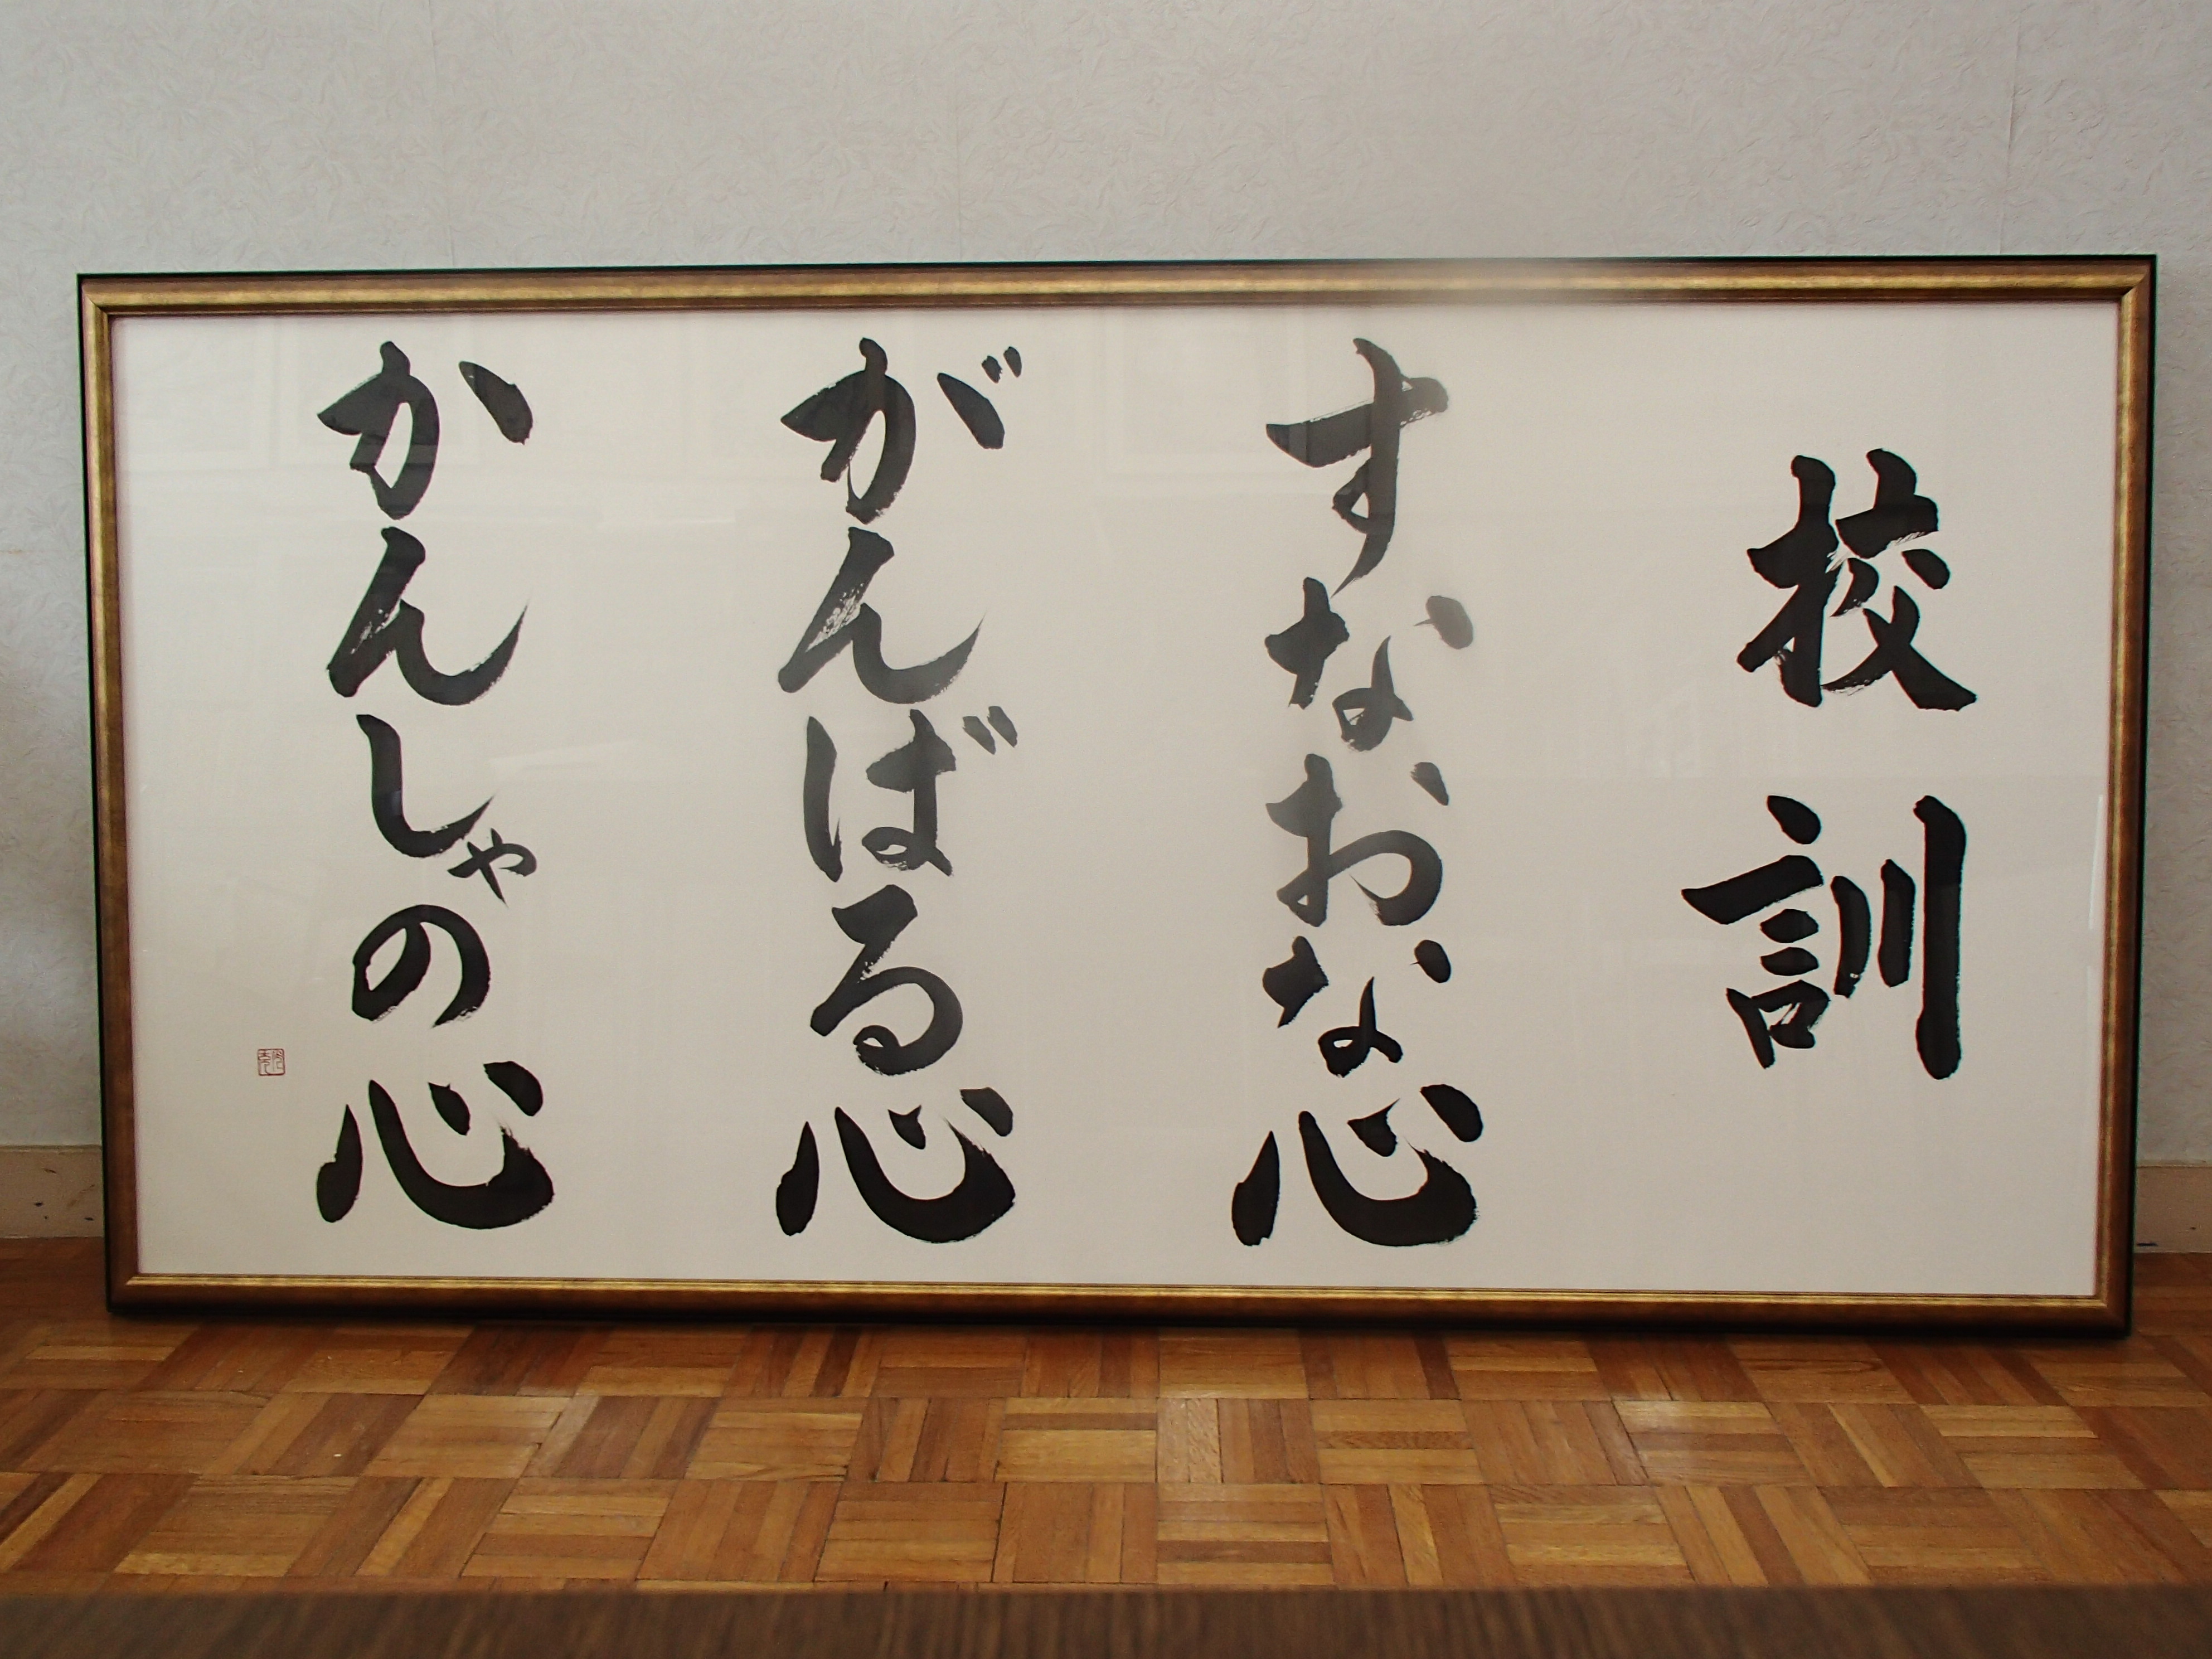 校訓
すなおな心
がんばる心
かんしゃの心